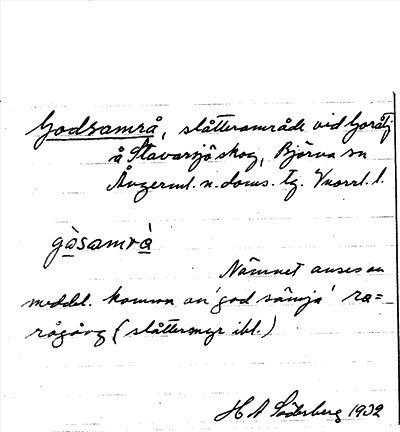 Godsamrå, slåtterområde vid Goråtj
å Stavarsjö skog, Björna sn
Ångerml. n. doms. tg. Vnorrl. l.
gòsamrà
Namnet anses av
meddel. komma av 'god sämja' ra=
rågång (slåttermyr ibl.)
H A Söderberg 1932